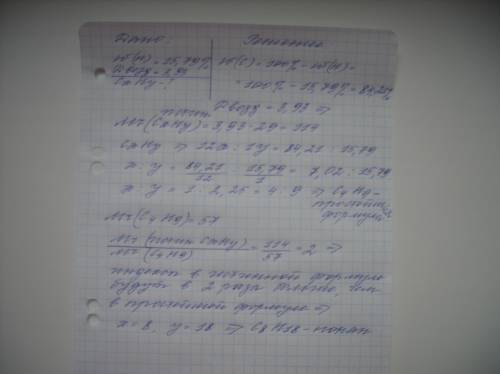 Дано: Решение
w(H) = 15,79% w(C) = 100% - w(H) =
D возд = 3,93 = 100% - 15,79% = 84,21%
CxHy - ?
D возд = 3,93 ⇒
Mr истин (CxHy) = 3,93 · 29 = 114
CxHy ⇒ 12x : 1y = 84,21 : 15,79
x : y = 84,21/12 : 15,79/1 = 7,02 : 15,79
x : y = 1 : 2,25 = 4 : 9 ⇒ C4H9 -
простейшая
формула
Mr(C4H9) = 57
Mr (истин CxHy) / Mr (C4H9) = 114/57 = 2 ⇒
индексы в истинной формуле
будут в 2 раза больше, чем
в простейшей формуле ⇒
x = 8, y = 18 ⇒ C8H18 -